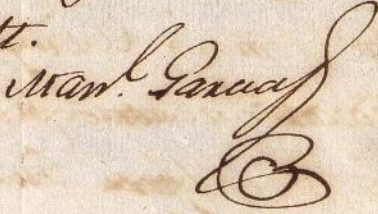 Man.l Garcia